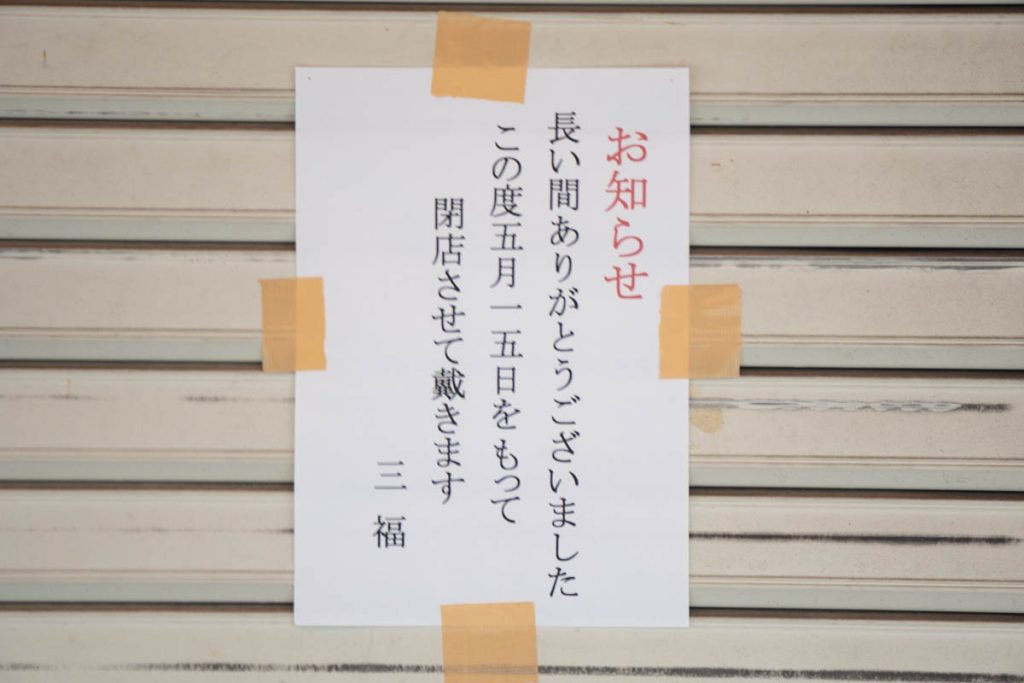 お知らせ
長い間ありがとうございました
この度五月一五日をもって
閉店させて戴きます
三福